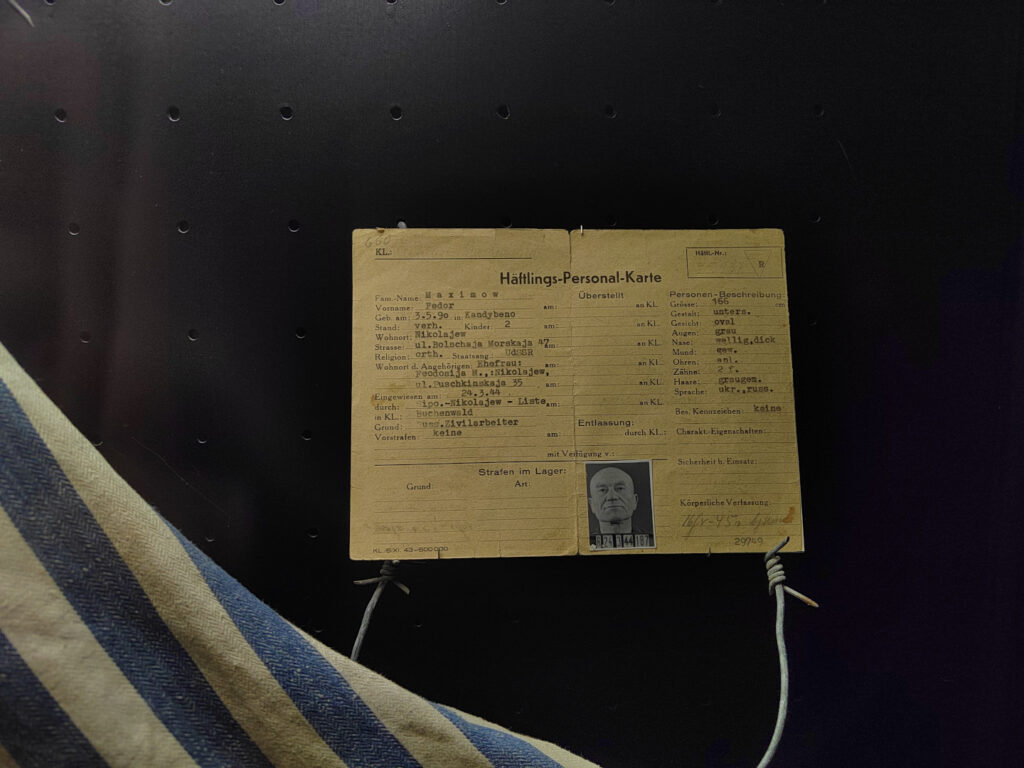 KL.:
Häftl.-Nr.:
R
Häftlings-Personal-Karte
Fam.-Name: Maximow
Vorname: Fedor
Geb. am: 3.5.90 in Kandybeno
Stand: verh. Kinder: 2
Wohnort: Nikolajew
Strasse: ul.Bolschaja Morskaja 47
Religion: orth. Staatsang. UdSSR
Wohnort d. Angehörigen: Ehefrau:
Feodosija M.,:Nikolajew,
ul.Puschkinskaja 35
Eingewiesen am: 24.3.44
durch: Sipo.-Nikolajew - Liste
in KL.: Buchenwald
Grund: russ.Zivilarbeiter
Vorstrafen: keine
Überstellt
am: an KL.
am: an KL.
am: an KL.
am: an KL.
am: an KL.
am: an KL.
Entlassung:
am: durch KL.:
mit Verfügung v.:
Personen-Beschreibung:
Grösse: 166 cm
Gestalt: unters.
Gesicht: oval
Augen: grau
Nase: wellig,dick
Mund: gew.
Ohren: anl.
Zähne: 2 f.
Haare: graugem.
Sprache: ukr.,russ.
Bes. Kennzeichen: keine
Charakt.-Eigenschaften:
Sicherheit b. Einsatz:
Körperliche Verfassung:
Strafen im Lager:
Grund: Art:
29749
KL/5/XI. 43-500000